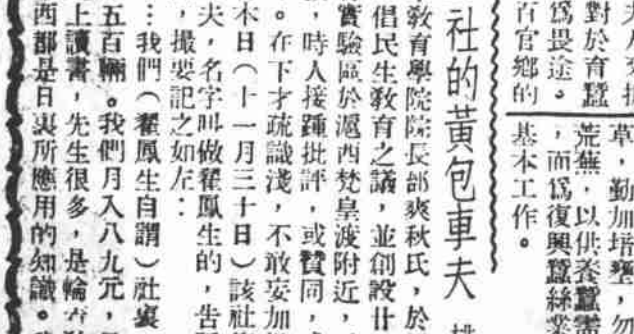 草，勤加培壅，勿
荒蕪，以供養蠶需
，而爲復興蠶絲業
基本工作。
對於育蠶
爲畏途。
百官鄉的
社的黃包車夫
敎育學院院長邰爽秋氏，於
倡民生敎育之議，並創設
實驗區於滬西梵皇渡附近，
，時人接踵批評，或贊同，
。在下才疏識淺，不敢妄加
本日（十一月三十日）該社
夫，名字叫做翟鳳生的，告
，撮要記之如左：
…我們（翟鳳生自謂）社裏
五百輛。我們月入八九元，
上讀書，先生很多，是輪
西都是日裏所應用的知識。